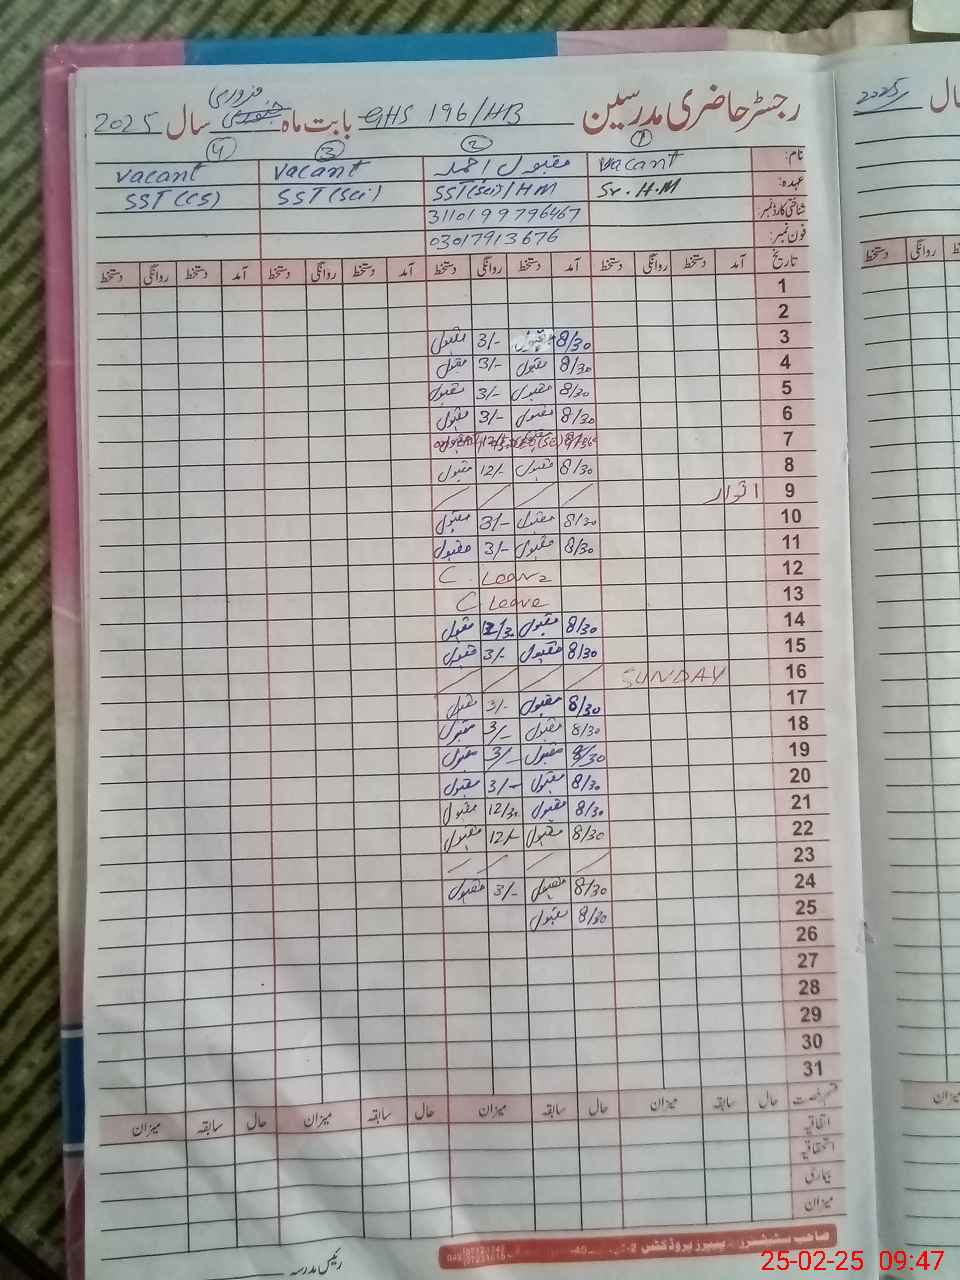 رجسٹر حاضری مدرسین GHS 196/HB بابت ماہ فروری سال 2025
2025 سال
① ② ③ ④
نام: Vacant مقبول احمد Vacant Vacant
عہدہ: Sr. H.M SST(Sci)/HM SST(Sci) SST(CS)
شناختی کارڈ نمبر: 3110199796467
فون نمبر: 03017913676
تاریخ آمد دستخط روانگی دستخط آمد دستخط روانگی دستخط آمد دستخط روانگی دستخط آمد دستخط روانگی دستخط
1
2
3 8/30 مقبول 3/- مقبول
4 8/30 مقبول 3/- مقبول
5 8/30 مقبول 3/- مقبول
6 8/30 مقبول 3/- مقبول
7
8 8/30 مقبول 12/- مقبول
9 اتوار
10 8/30 مقبول 3/- مقبول
11 8/30 مقبول 3/- مقبول
12 C. Leave
13 C Leave
14 8/30 مقبول مقبول
15 8/30 مقبول 3/- مقبول
16 SUNDAY
17 8/30 مقبول 3/- مقبول
18 8/30 مقبول 3/- مقبول
19 8/30 مقبول 3/- مقبول
20 8/30 مقبول 3/- مقبول
21 8/30 مقبول 12/30 مقبول
22 8/30 مقبول 12/- مقبول
23
24 8/30 مقبول 3/- مقبول
25 8/30 مقبول
26
27
28
29
30
31
قسم رخصت حال سابقہ میزان حال سابقہ میزان حال سابقہ میزان حال سابقہ میزان
اتفاقیہ
استحقاقیہ
بیماری
میزان
رئیس مدرسہ
25-02-25 09:47